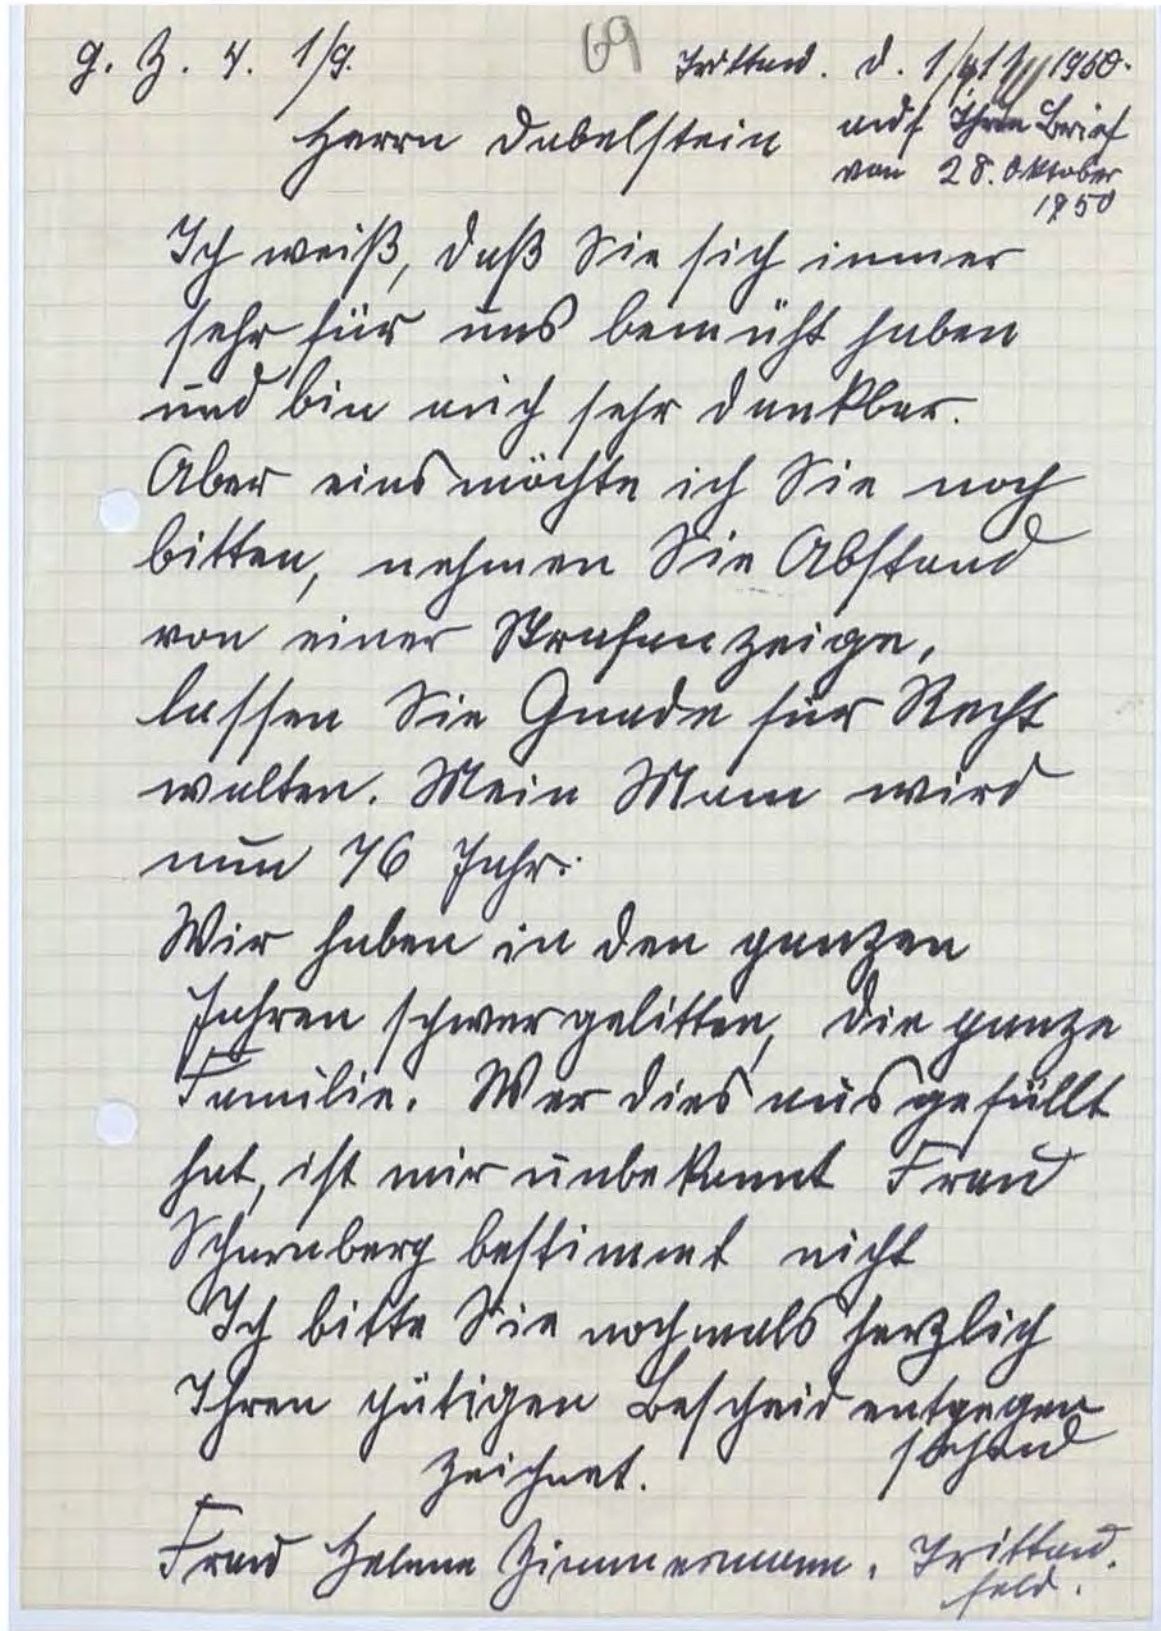 g. Z. 4. 1/9.
69
Trittau. d. 1/11 1950.
Herrn Dabelstein
auf Ihren Brief
von 28. Oktober
1950
Ich weiß, daß Sie sich immer
sehr für uns bemüht haben
und bin auch sehr dankbar.
Aber eins möchte ich Sie noch
bitten, nehmen Sie Abstand
von einer Strafanzeige,
lassen Sie Gnade für Recht
walten. Mein Mann wird
nun 76 Jahr.
Wir haben in den ganzen
Jahren schwer gelitten, die ganze
Familie. Wer dies ausgefüllt
hat, ist mir unbekannt Frau
Scharnberg bestimmt nicht
Ich bitte Sie nochmals herzlich
Ihren gütigen Bescheid entgegen
sehend
zeichnet.
Frau Helene Zimmermann. Trittau.
feld.